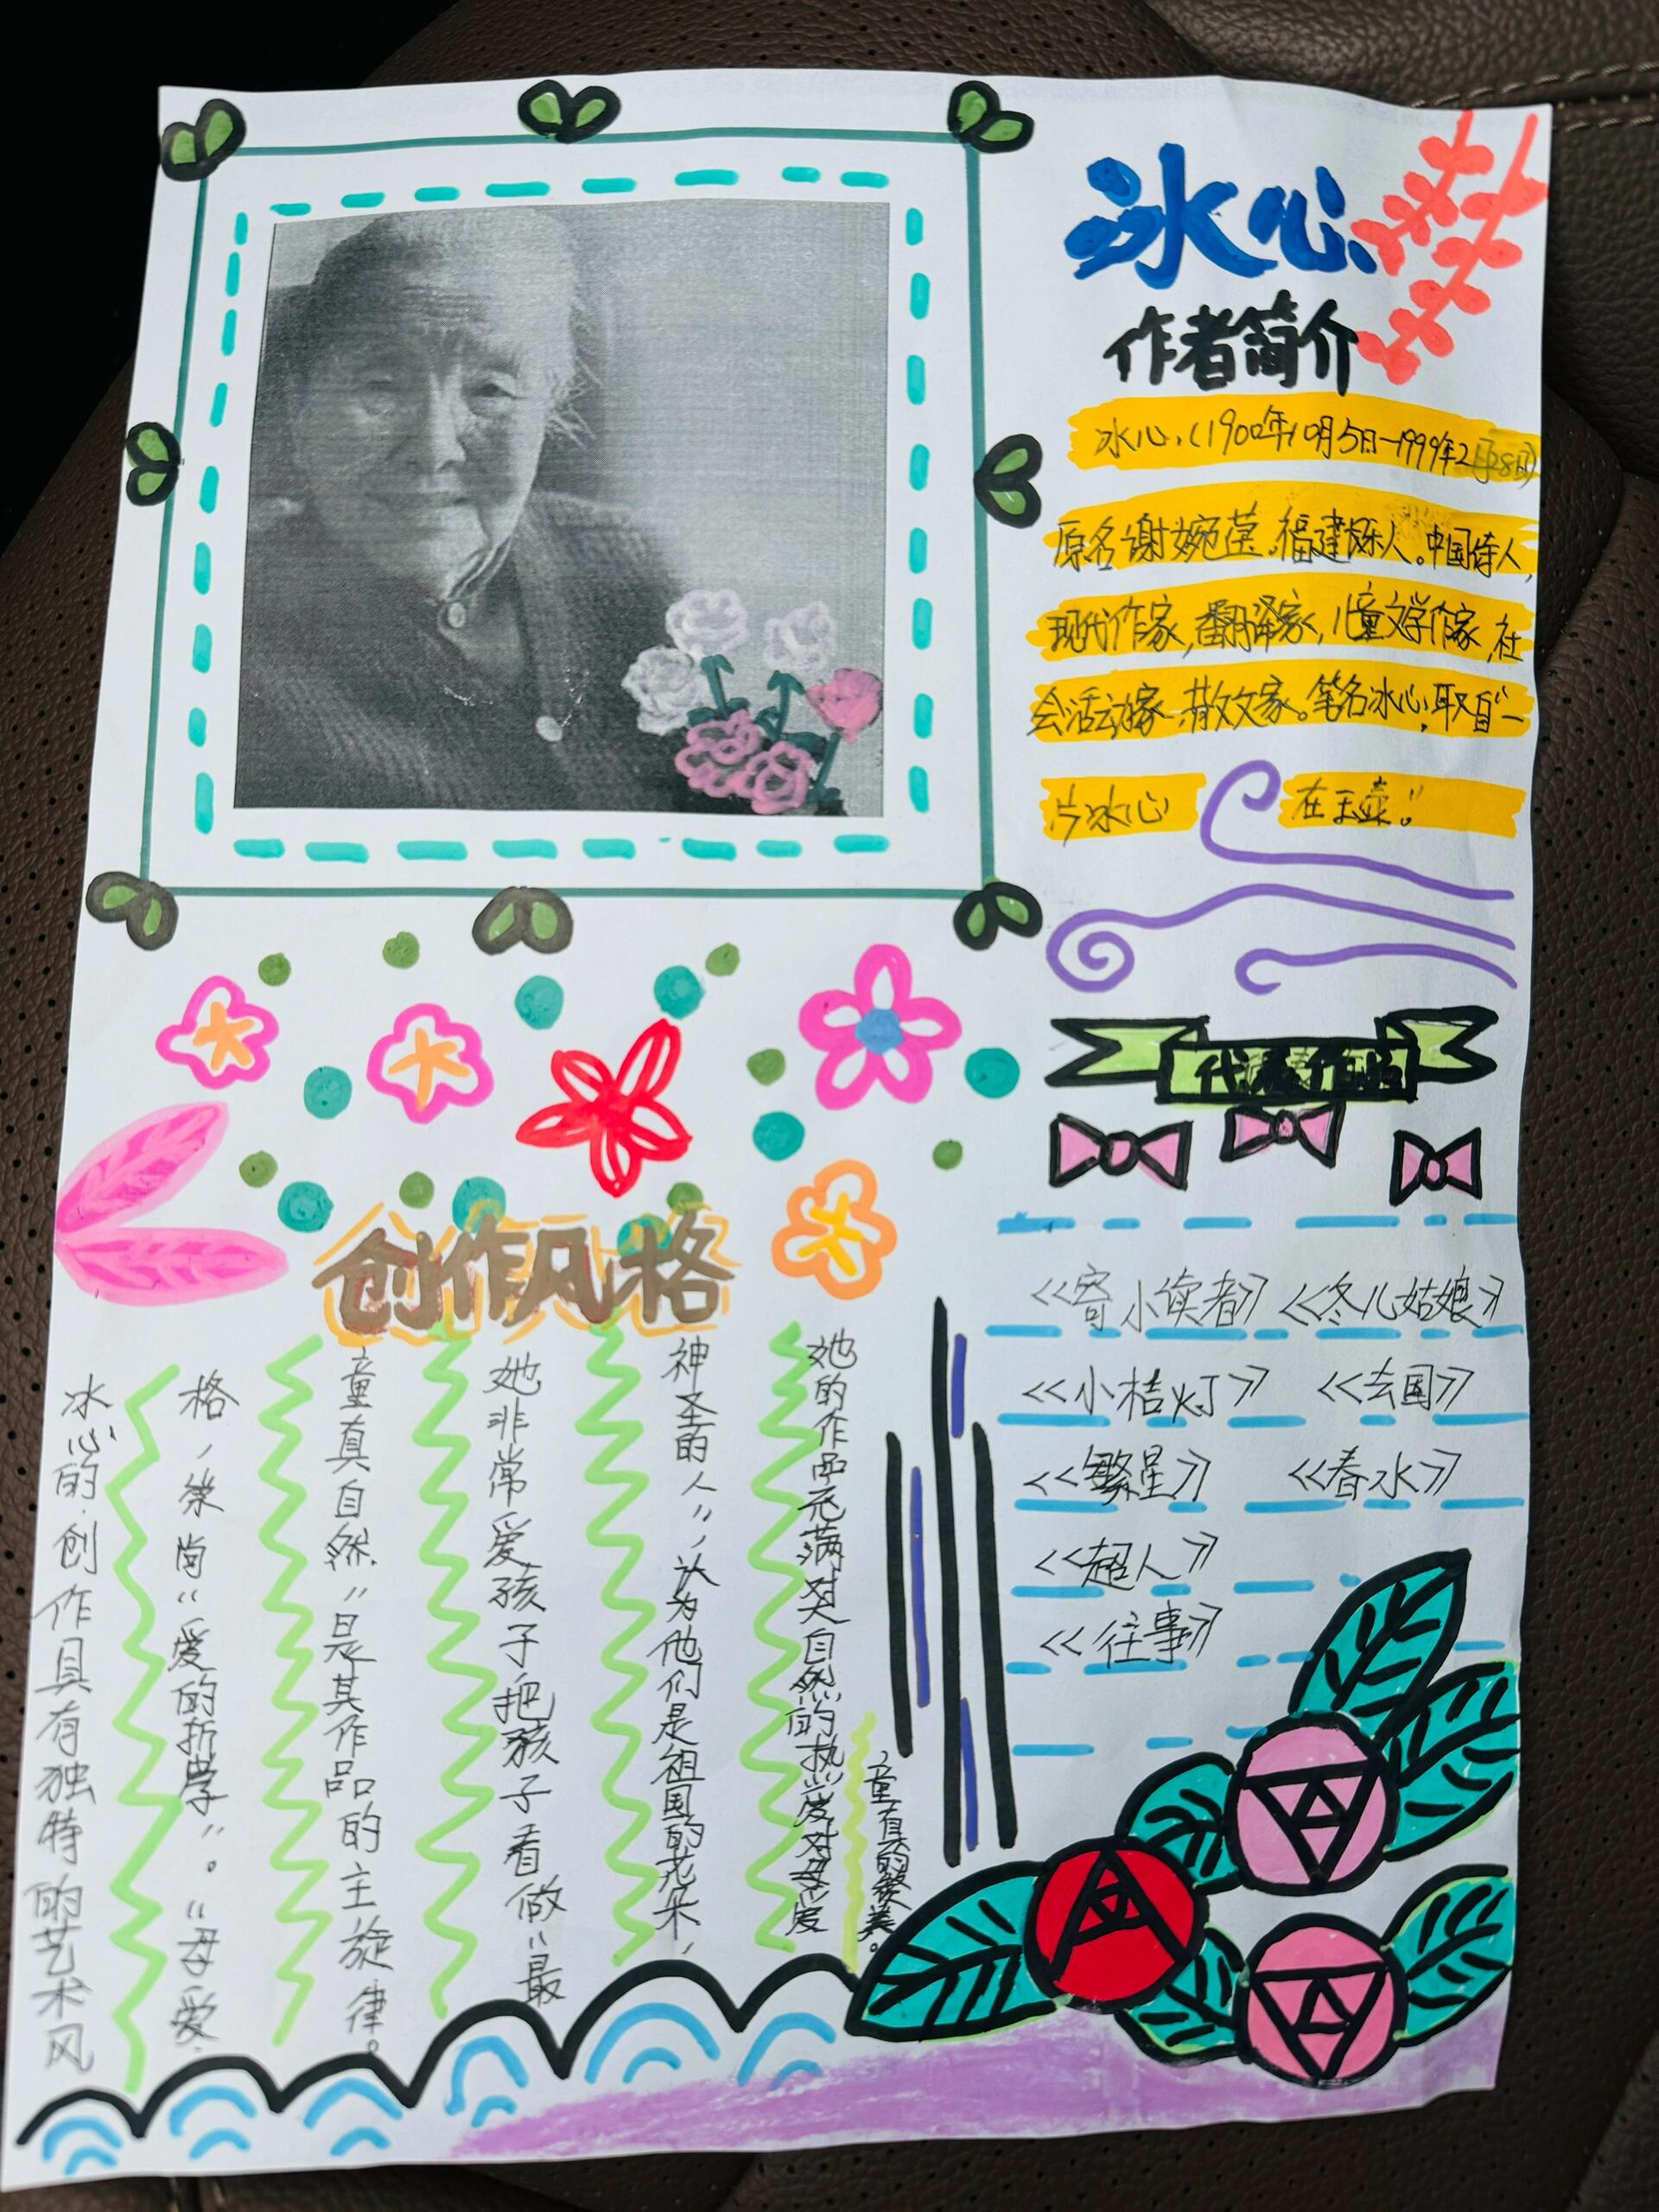 冰心
作者简介
冰心,(1900年10月5日—1999年2月28日)
原名谢婉莹,福建长乐人。中国诗人,
现代作家,翻译家,儿童文学作家,社
会活动家,散文家。笔名冰心,取自“一
片冰心在玉壶”。
代表作品
《寄小读者》《冬儿姑娘》
《小桔灯》《去国》
《繁星》《春水》
《超人》
《往事》
创作风格
冰心的创作具有独特的艺术风
格,崇尚“爱的哲学”。“母爱
童真自然”是其作品的主旋律。
她非常爱孩子把孩子看做“最
神圣的人”,认为他们是祖国的花朵,
她的作品充满对大自然的热爱对母爱
,童真的赞美。